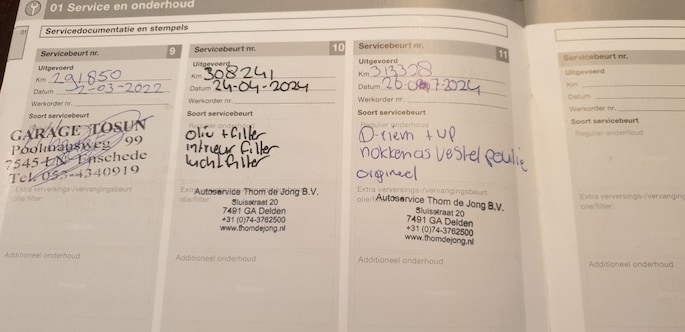 01 Service en onderhoud
01
Servicedocumentatie en stempels
Servicebeurt nr. 9
Uitgevoerd
Km 291850
Datum 2-03-2022
Werkorder nr.
Soort servicebeurt
GARAGE TOSUN
Poolmansweg 99
7545 LN Enschede
Tel. 053-4340919
Extra verversings-/vervangingsbeurt
olie/filter:
Additioneel onderhoud
Servicebeurt nr. 10
Uitgevoerd
Km 308241
Datum 24-04-2024
Werkorder nr.
Soort servicebeurt
Regulier onderhoud
olie + filter
intrieur filter
lucht filter
Autoservice Thom de Jong B.V.
Sluisstraat 20
7491 GA Delden
+31 (0)74-3762500
www.thomdejong.nl
Additioneel onderhoud
Servicebeurt nr. 11
Uitgevoerd
Km 313328
Datum 26-07-2024
Werkorder nr.
Soort servicebeurt
Regulier onderhoud
D-riem + WP
nokkenas Vestel poulie
origineel
Extra verversings-/vervangingsbeurt
olie/filter:
Autoservice Thom de Jong B.V.
Sluisstraat 20
7491 GA Delden
+31 (0)74-3762500
www.thomdejong.nl
Additioneel onderhoud
Servicebeurt nr.
Uitgevoerd
Km
Datum
Werkorder nr.
Soort servicebeurt
Regulier onderhoud
Extra verversings-/vervanging
olie/filter:
Additioneel onderhoud